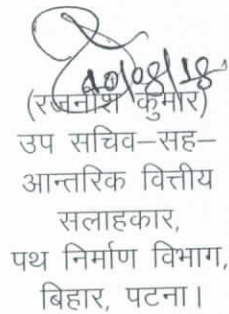 10/08/18
(रजनीश कुमार)
उप सचिव–सह–
आन्तरिक वित्तीय
सलाहकार,
पथ निर्माण विभाग,
बिहार, पटना।